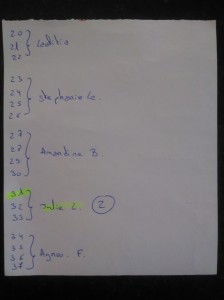 20
21 } Laetitia
22
23
24
25 } Stephanie Le.
26
27
28 } Amandine B.
29
30
31
32 } Julie L. 2
33
34
35 } Agnes. F.
36
37